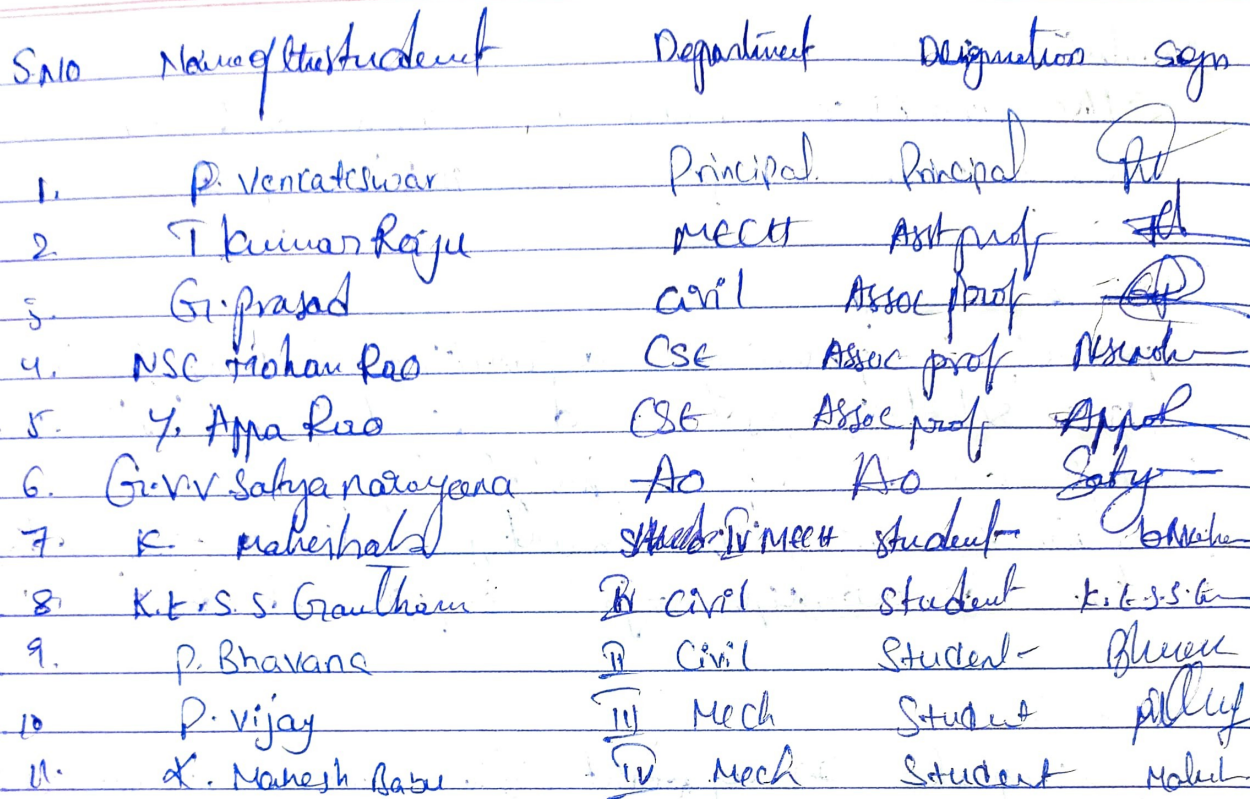 S.NO Name of the student Department Designation Sign
1. P. Venkateswar Principal. Principal
2. T Kumar Raju MECH Asst prof
3. G. prasad civil Assoc prof
4. NSC Mohan Rao CSE Assoc prof
5. Y. Appa Rao CSE Assoc prof
6. G.V.V Satyanarayana AO AO Saty
7. K. IV MECH student
8. K.E.S.S. Gautham civil student K.E.S.S.G
9. P. Bhavana II Civil Student
10 P. Vijay III Mech Student
11. K. Mahesh Babu. IV Mech Student